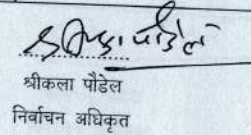 श्रीकला पौडेल
श्रीकला पौडेल
निर्वाचन अधिकृत